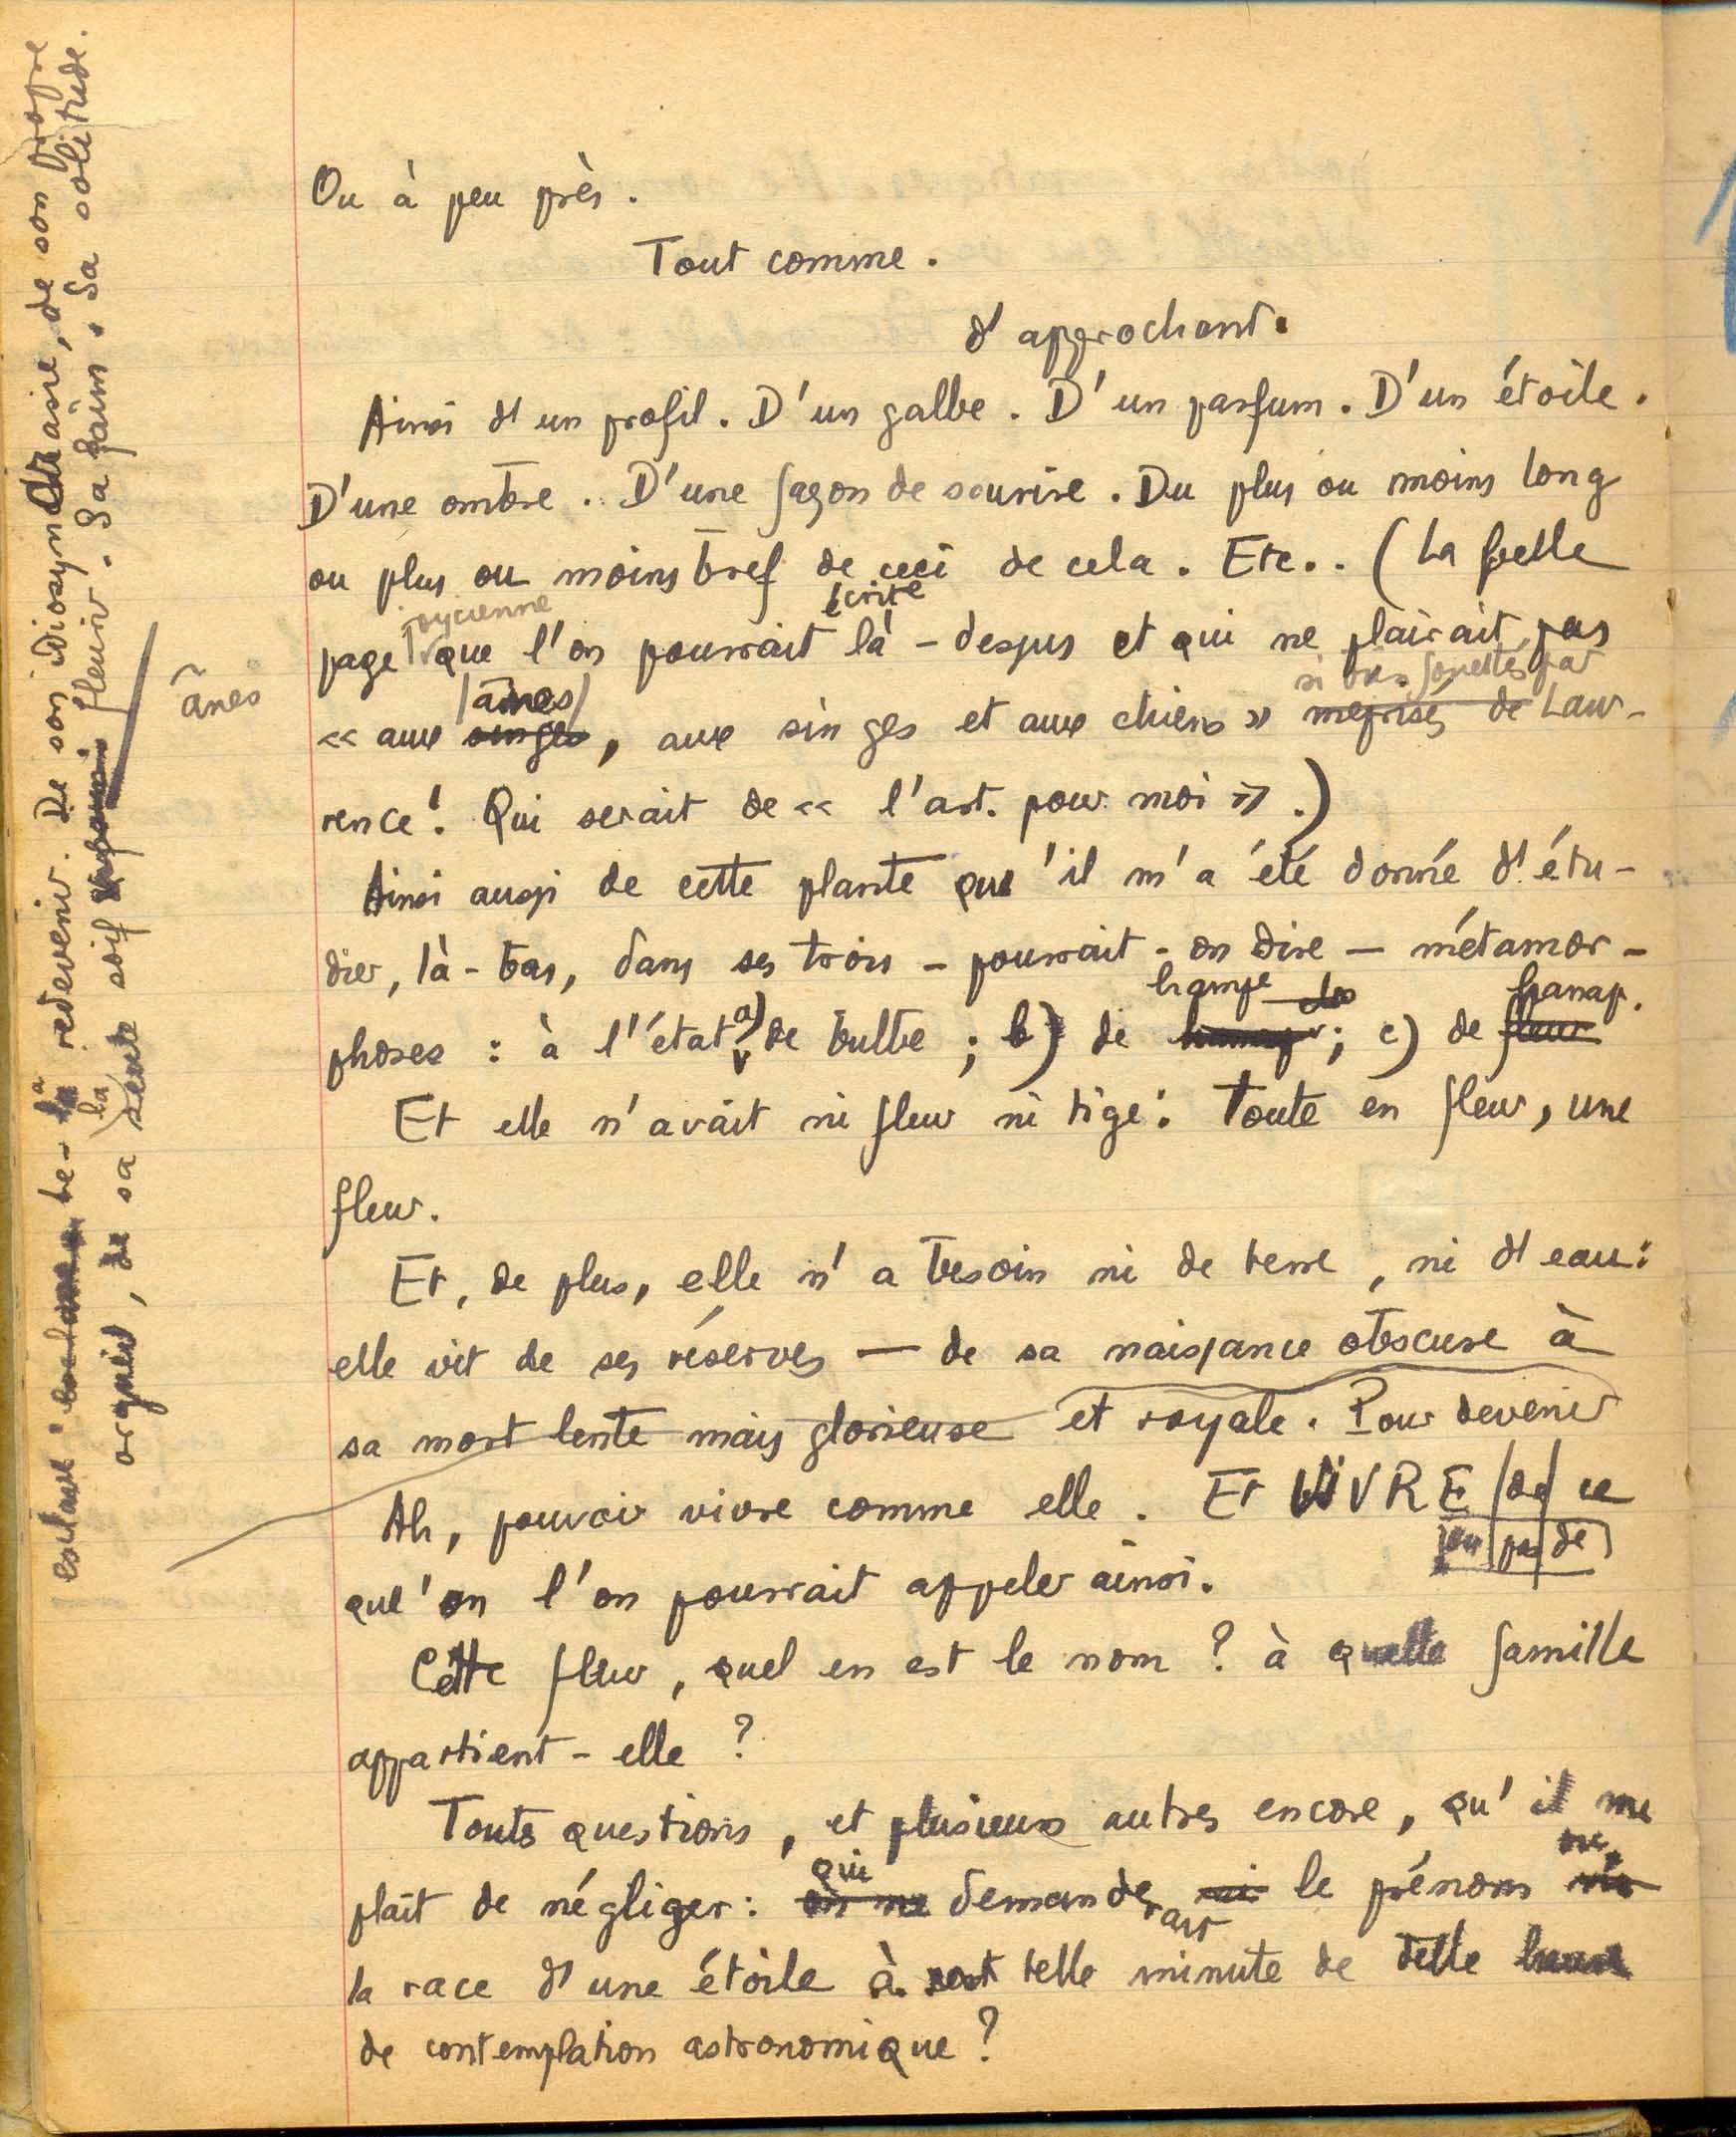 Ou à peu près.
Tout comme.
d'approchant.
Ainsi d'un profil. D'un galbe. D'un parfum. D'un étoile.
D'une ombre. D'une façon de sourire. Du plus ou moins long
ou plus ou moins bref de ceci de cela. Etc.. (La belle
joycienne
écrire
page que l'on pourrait là-dessus et qui ne plairait pas
si bien fouettés par
ânes
« aux singes, aux singes et aux chiens » méprisés de Law-
ânes
rence! Qui serait de « l'art pour moi ».)
Ainsi aussi de cette plante qu'il m'a été donné d'étu-
dier, là-bas, dans ses trois – pourrait-on dire – métamor-
hampe
hanap.
phoses : à l'état a) de bulbe ; b) de ; c) de fleur
Et elle n'avait ni fleur ni tige : Toute en fleur, une
fleur.
Et, de plus, elle n'a besoin ni de terre, ni d'eau :
elle vit de ses réserves — de sa naissance obscure à
sa mort lente mais glorieuse et royale. Pour devenir
Ah, pouvoir vivre comme elle. Et VIVRE de ce
pas de
que l'on pourrait appeler ainsi.
Cette fleur, quel en est le nom ? à quelle famille
appartient-elle ?
Toutes questions, et plusieurs autres encore, qu'il me
qui
plaît de négliger : on me demanderait le prénom
ou
la race d'une étoile à telle minute de telle heure
de contemplation astronomique ?
redevenir. De son idiosyncrasie, de son propre
orgueil, de sa seule soif fleurir. Sa faim. Sa solitude.
la